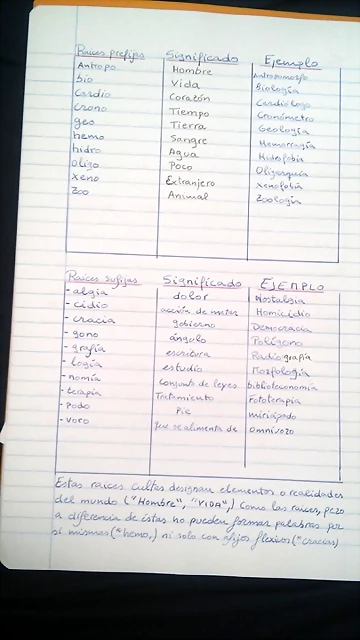 Raices prefijas Significado Ejemplo
Antropo Hombre Antropomorfo
bio Vida Biología
Cardio Corazón Cardiólogo
Crono Tiempo Cronómetro
geo Tierra Geología
hemo Sangre Hemorragia
hidro Agua Hidrofobia
Oligo Poco Oligarquía
xeno Extranjero xenofobia
Zoo Animal Zoología
Raices sufijas Significado EJEMPLO
-algia dolor Nostalgia
-cidio acción de matar Homicidio
-cracia gobierno Democracia
-gono ángulo Polígono
-grafía escritura Radiografía
-logía estudio Morfología
-nomía conjunto de leyes biblioteconomía
-terapia Tratamiento Fototerapia
-podo Pie miriápodo
-voro que se alimenta de omnívoro
Estas raices cultas designan elementos o realidades
del mundo ("Hombre", "VIDA",) como las raices, pero
a diferencia de éstas no pueden formar palabras por
sí mismas ("hemo,) ni solo con afijos flexivos ("cracias)